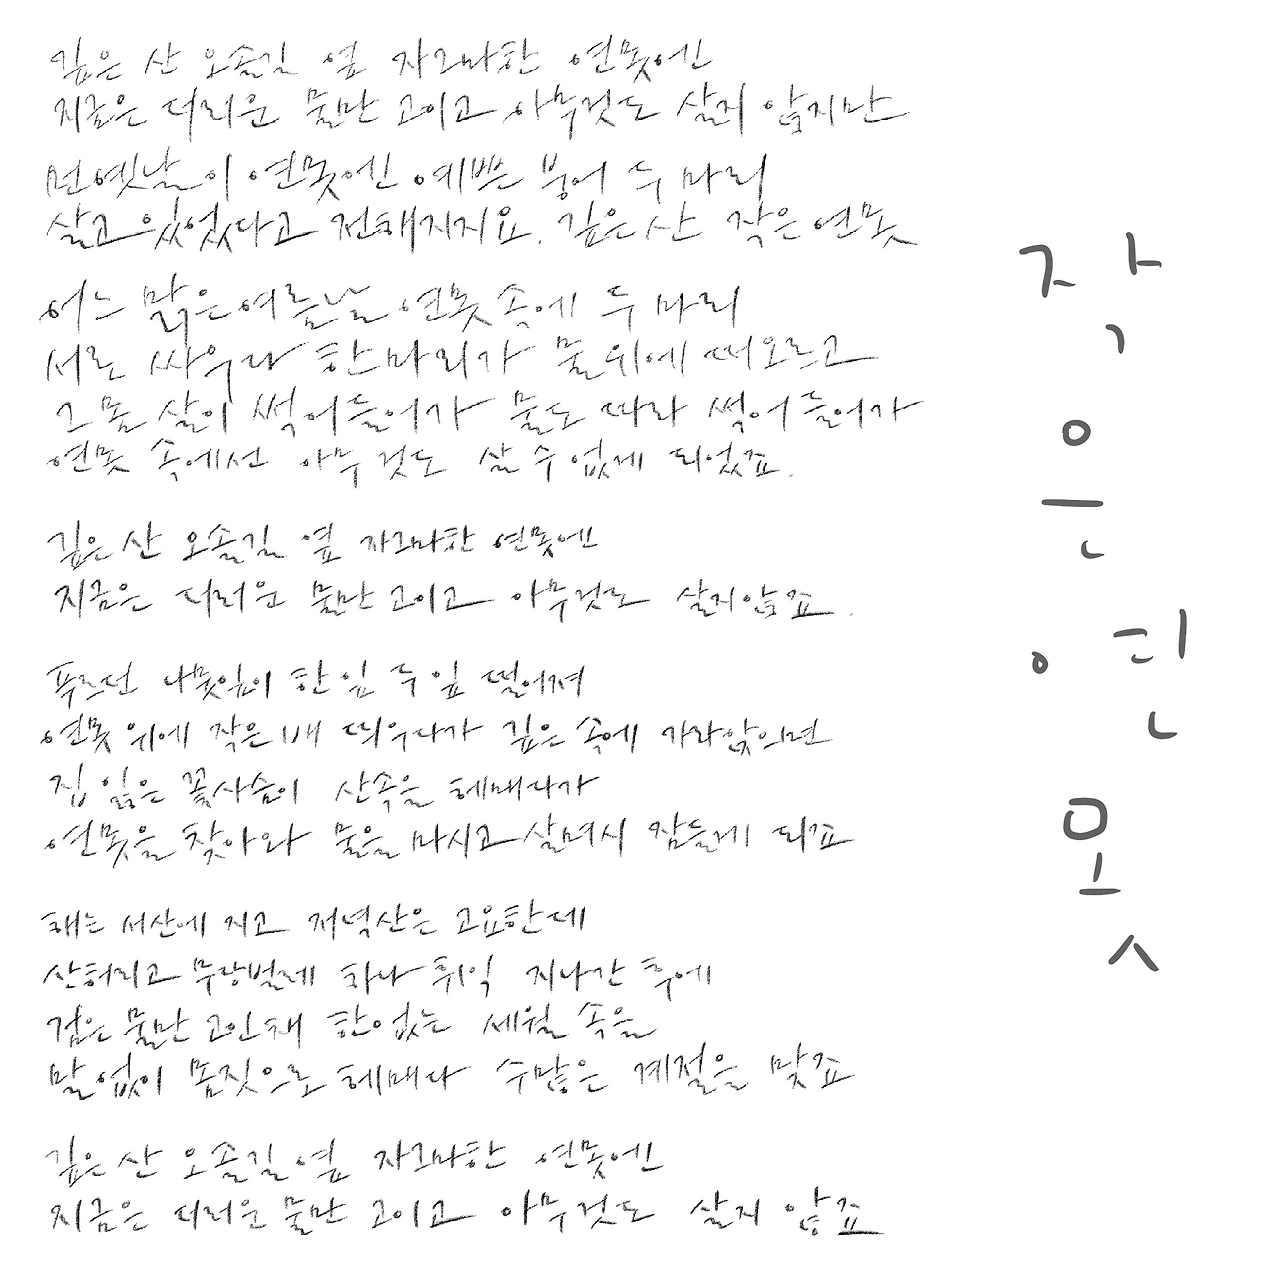 깊은 산 오솔길 옆 자그마한 연못에
지금은 더러운 물만 고이고 아무것도 살지 않지만
먼 옛날 이 연못엔 예쁜 붕어 두 마리
살고 있었다고 전해지지요. 깊은 산 작은 연못
어느 맑은 여름날 연못 속에 두 마리
서로 싸우다 한 마리가 물 위에 떠오르고
그 몸 살이 썩어 들어가 물도 따라 썩어 들어가
연못 속에선 아무 것도 살 수 없게 되었죠.
깊은 산 오솔길 옆 자그마한 연못엔
지금은 더러운 물만 고이고 아무것도 살지 않죠.
푸르던 나뭇잎이 한 잎 두 잎 떨어져
연못 위에 작은 배 띄우다가 깊은 속에 가라앉으면
집 잃은 꽃사슴이 산속을 헤매다가
연못을 찾아와 물을 마시고 살며시 잠들게 되죠
해는 서산에 지고 저녁 산은 고요한데
산허리로 무당벌레 하나 휘익 지나간 후에
검은 물만 고인 채 한없는 세월 속을
말 없이 몸짓으로 헤매다 수많은 계절을 맞죠
깊은 산 오솔길 옆 자그마한 연못엔
지금은 더러운 물만 고이고 아무것도 살지 않죠
작은 연못